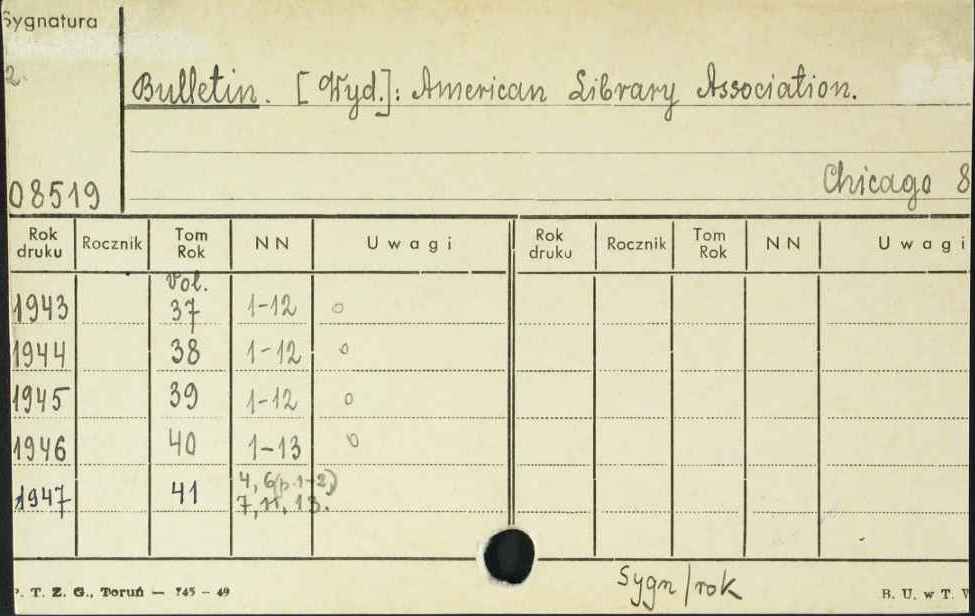 Sygnatura
2.
Bulletin. [Wyd.]: American Library Association.
Chicago 8
08519
Rok druku Rocznik Tom Rok NN Uwagi Rok druku Rocznik Tom Rok NN Uwagi
Vol.
1943 37 1-12 o
1944 38 1-12 o
1945 39 1-12 o
1946 40 1-13 o
1947 41 4, 6(p.1-2)
7, 11, 13.
Sygn/rok
P. T. Z. G., Toruń — 745 - 49 B. U. w T.